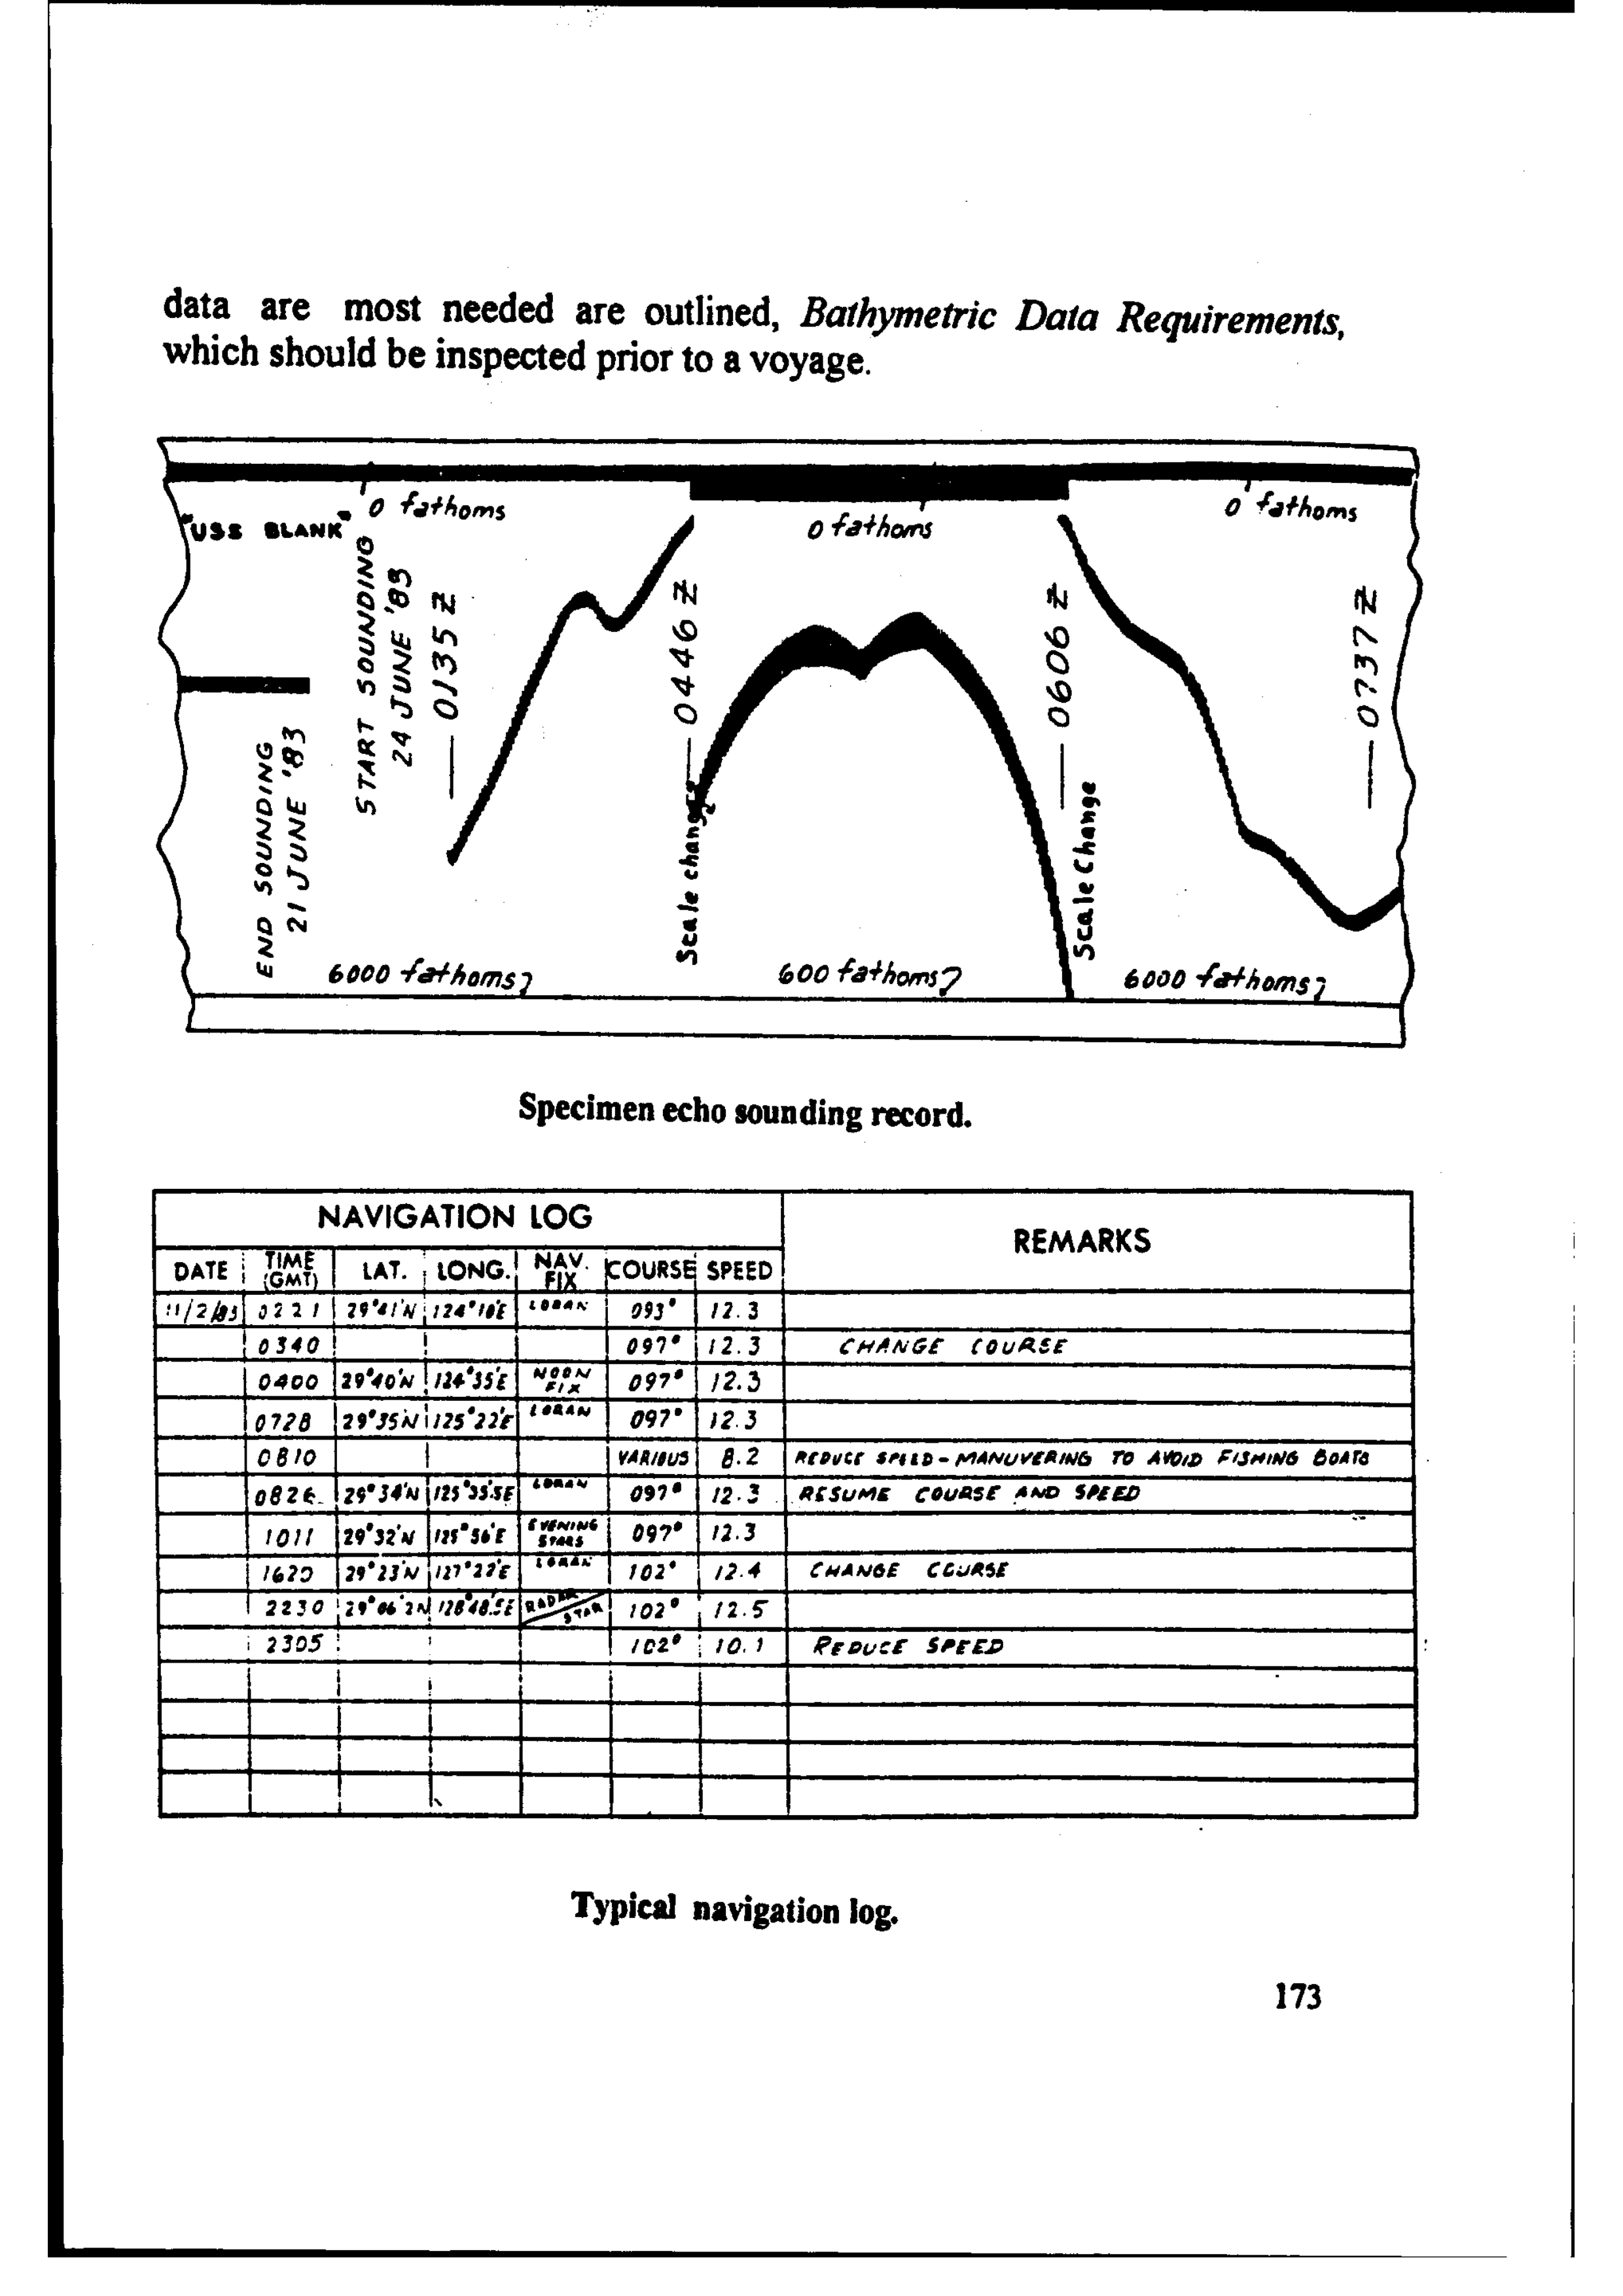 data are most needed are outlined, Bathymetric Data Requirements,
which should be inspected prior to a voyage.
0 fathoms
0 fathoms
0 fathoms
"USS BLANK"
END SOUNDING
21 JUNE '83
START SOUNDING
24 JUNE '83
— 0135 Z
— 0446 Z
Scale change
— 0606 Z
Scale Change
— 0737 Z
6000 fathoms
600 fathoms
6000 fathoms
Specimen echo sounding record.
NAVIGATION LOG REMARKS
DATE TIME (GMT) LAT. LONG. NAV. FIX COURSE SPEED
11/2/83 0221 29°41'N 124°10'E LORAN 093° 12.3
0340 097° 12.3 CHANGE COURSE
0400 29°40'N 124°35'E NOON FIX 097° 12.3
0728 29°35'N 125°22'E LORAN 097° 12.3
0810 VARIOUS 8.2 REDUCE SPEED - MANUVERING TO AVOID FISHING BOATS
0826 29°34'N 125°35.5E LORAN 097° 12.3 RESUME COURSE AND SPEED
1011 29°32'N 125°56'E EVENING STARS 097° 12.3
1620 29°23'N 127°22'E LORAN 102° 12.4 CHANGE COURSE
2230 29°06'2N 128°48.5E RADAR STAR 102° 12.5
2305 102° 10.1 REDUCE SPEED
Typical navigation log.
173